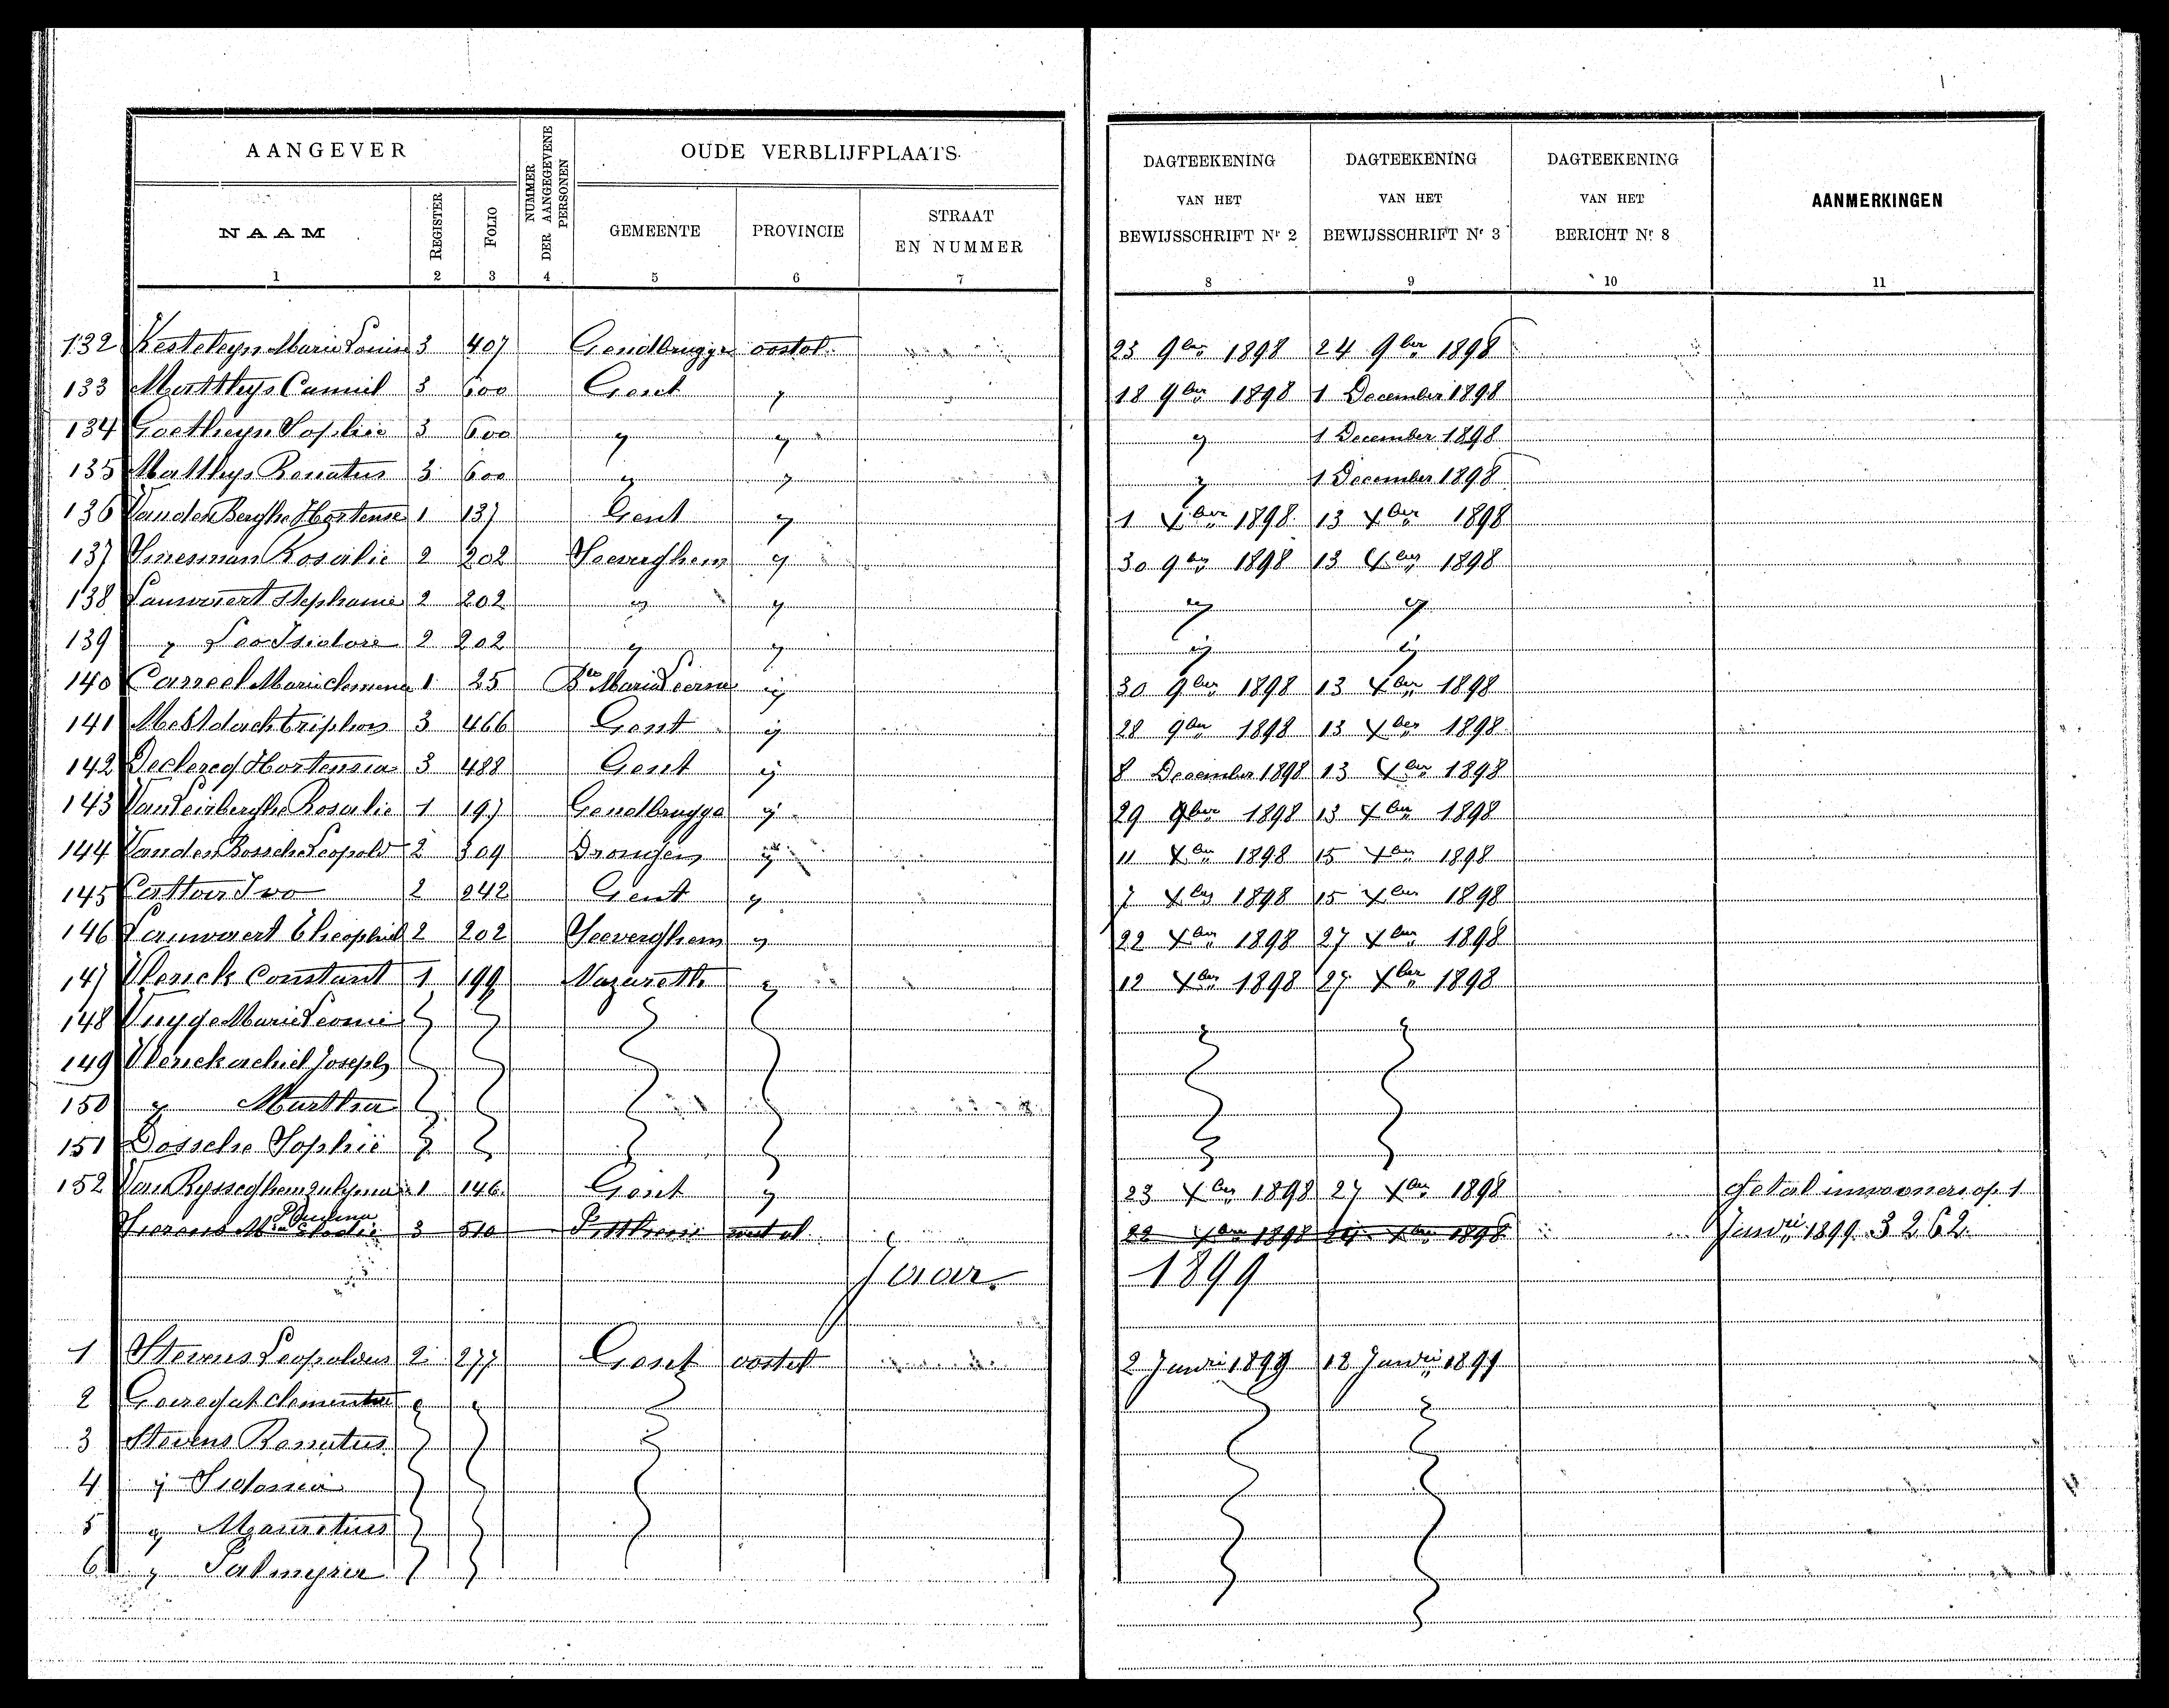 AANGEVER
NUMMER DER AANGEGEVENE PERSONEN
OUDE VERBLIJFPLAATS
DAGTEEKENING VAN HET BEWIJSSCHRIFT Nr 2
DAGTEEKENING VAN HET BEWIJSSCHRIFT Nr 3
DAGTEEKENING VAN HET BERICHT Nr 8
AANMERKINGEN
NAAM
REGISTER
FOLIO
GEMEENTE
PROVINCIE
STRAAT EN NUMMER
1 2 3 4 5 6 7 8 9 10 11
132 Kesteleyn Marie Louise 3 407 Gendbrugge oostvl. 23 9ber 1898 24 9ber 1898
133 Matthys Camiel 3 600 Gent y 18 9ber 1898 1 December 1898
134 Goetheyn Sophie 3 600 y y y 1 December 1898
135 Matthys Renatus 3 600 y y y 1 December 1898
136 Vanden Berghe Hortense 1 137 Gent y 1 Xber 1898 13 Xber 1898
137 Rosalie 2 202 Seeverghem y 30 9ber 1898 13 Xber 1898
138 Lauwaert Stephanie 2 202 y y y y
139 y Leo Isidore 2 202 y y y y
140 Casseel Marie 1 25 Ste Maria Leerne y 30 9ber 1898 13 Xber 1898
141 Mestdach Triphon 3 466 Gent y 28 9ber 1898 13 Xber 1898
142 Declercq Hortensia 3 488 Gent y 8 December 1898 13 Xber 1898
143 Van Leirberghe Rosalie 1 197 Gendbrugge y 29 9ber 1898 13 Xber 1898
144 Vanden Bossche Leopold 2 309 Drongen y 11 Xber 1898 15 Xber 1898
145 Cattoir Ivo 2 242 Gent y 7 Xber 1898 15 Xber 1898
146 Lauwaert Theophiel 2 202 Seeverghem y 22 Xber 1898 27 Xber 1898
147 Vlerick Constant 1 199 Nazareth y 12 Xber 1898 27 Xber 1898
148 Marie Leonie
149 Vlerick achiel Joseph
150 y Martha
151 Dossche Sophie
152 Van Rysseghem 1 146 Gent y 23 Xber 1898 27 Xber 1898 Getal inwooners op 1
3 510 22 Xber 1898 Xber 1898 Janrii 1899 3262
Jaar 1899
1 Stevens Leopoldus 2 277 Gent oostvl 2 Janrii 1899 12 Janrii 1899
2 Clementia
3 Stevens Renatus
4 y Sidonia
5 y Mauritius
6 y Palmyra